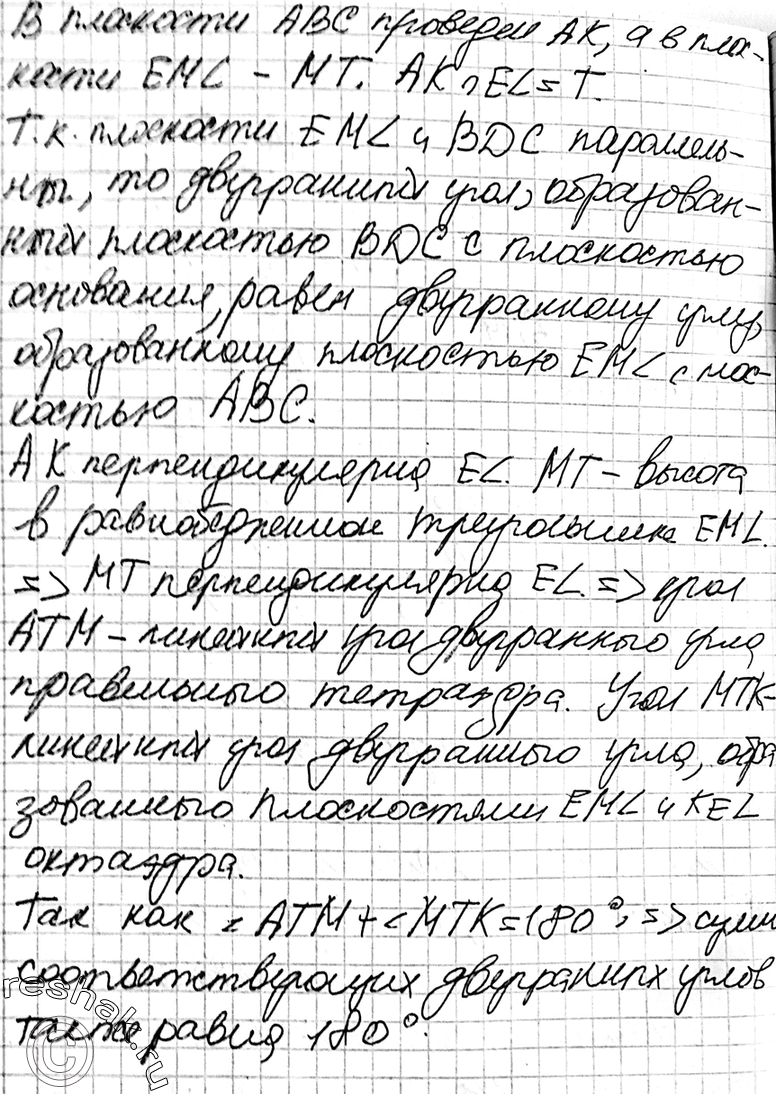 В плоскости ABC проведем AK, а в плос-
кости EML - MT. AK ∩ EL = T.
Т.к. плоскости EML и BDC параллель-
ны, то двугранный угол, образован-
ный плоскостью BDC с плоскостью
основания, равен двугранному углу,
образованному плоскостью EML с плос-
костью ABC.
AK перпендикулярна EL. MT - высота
в равнобедренном треугольнике EML.
=> MT перпендикулярна EL. => угол
ATM - линейный угол двугранного угла
правильного тетраэдра. Угол MTK -
линейный угол двугранного угла, обра
зованного плоскостями EML и KEL
октаэдра.
Так как < ATM + < MTK = 180°, => сумм
соответствующих двугранных углов
также равна 180°.
© reshak.ru